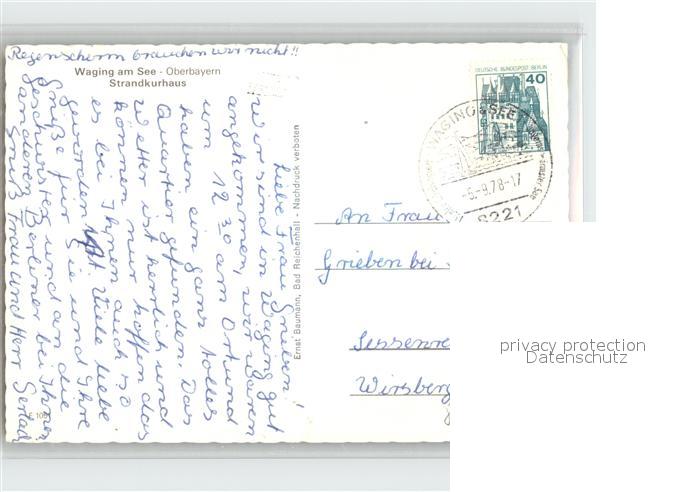 Regenschirm brauchen wir nicht!!
Waging am See - Oberbayern
Strandkurhaus
Liebe Frau Grieben!
Wir sind in Waging gut
angekommen, wir waren
um 12 30 am Ort und
haben ein ganz tolles
Quartier gefunden. Das
Wetter ist herrlich und
können nur hoffen das
es bei Ihnen auch so
geworden ist. Viele liebe
Grüße für Sie und Ihre
Geschwister und an die
anderen Berliner bei Ihnen
Gruß Frau und Herr
Ernst Baumann, Bad Reichenhall - Nachdruck verboten
DEUTSCHE BUNDESPOST BERLIN
40
WAGING a SEE
-5.-9.78-17
8221
An Frau
Grieben bei
Wirsberg
privacy protection
Datenschutz